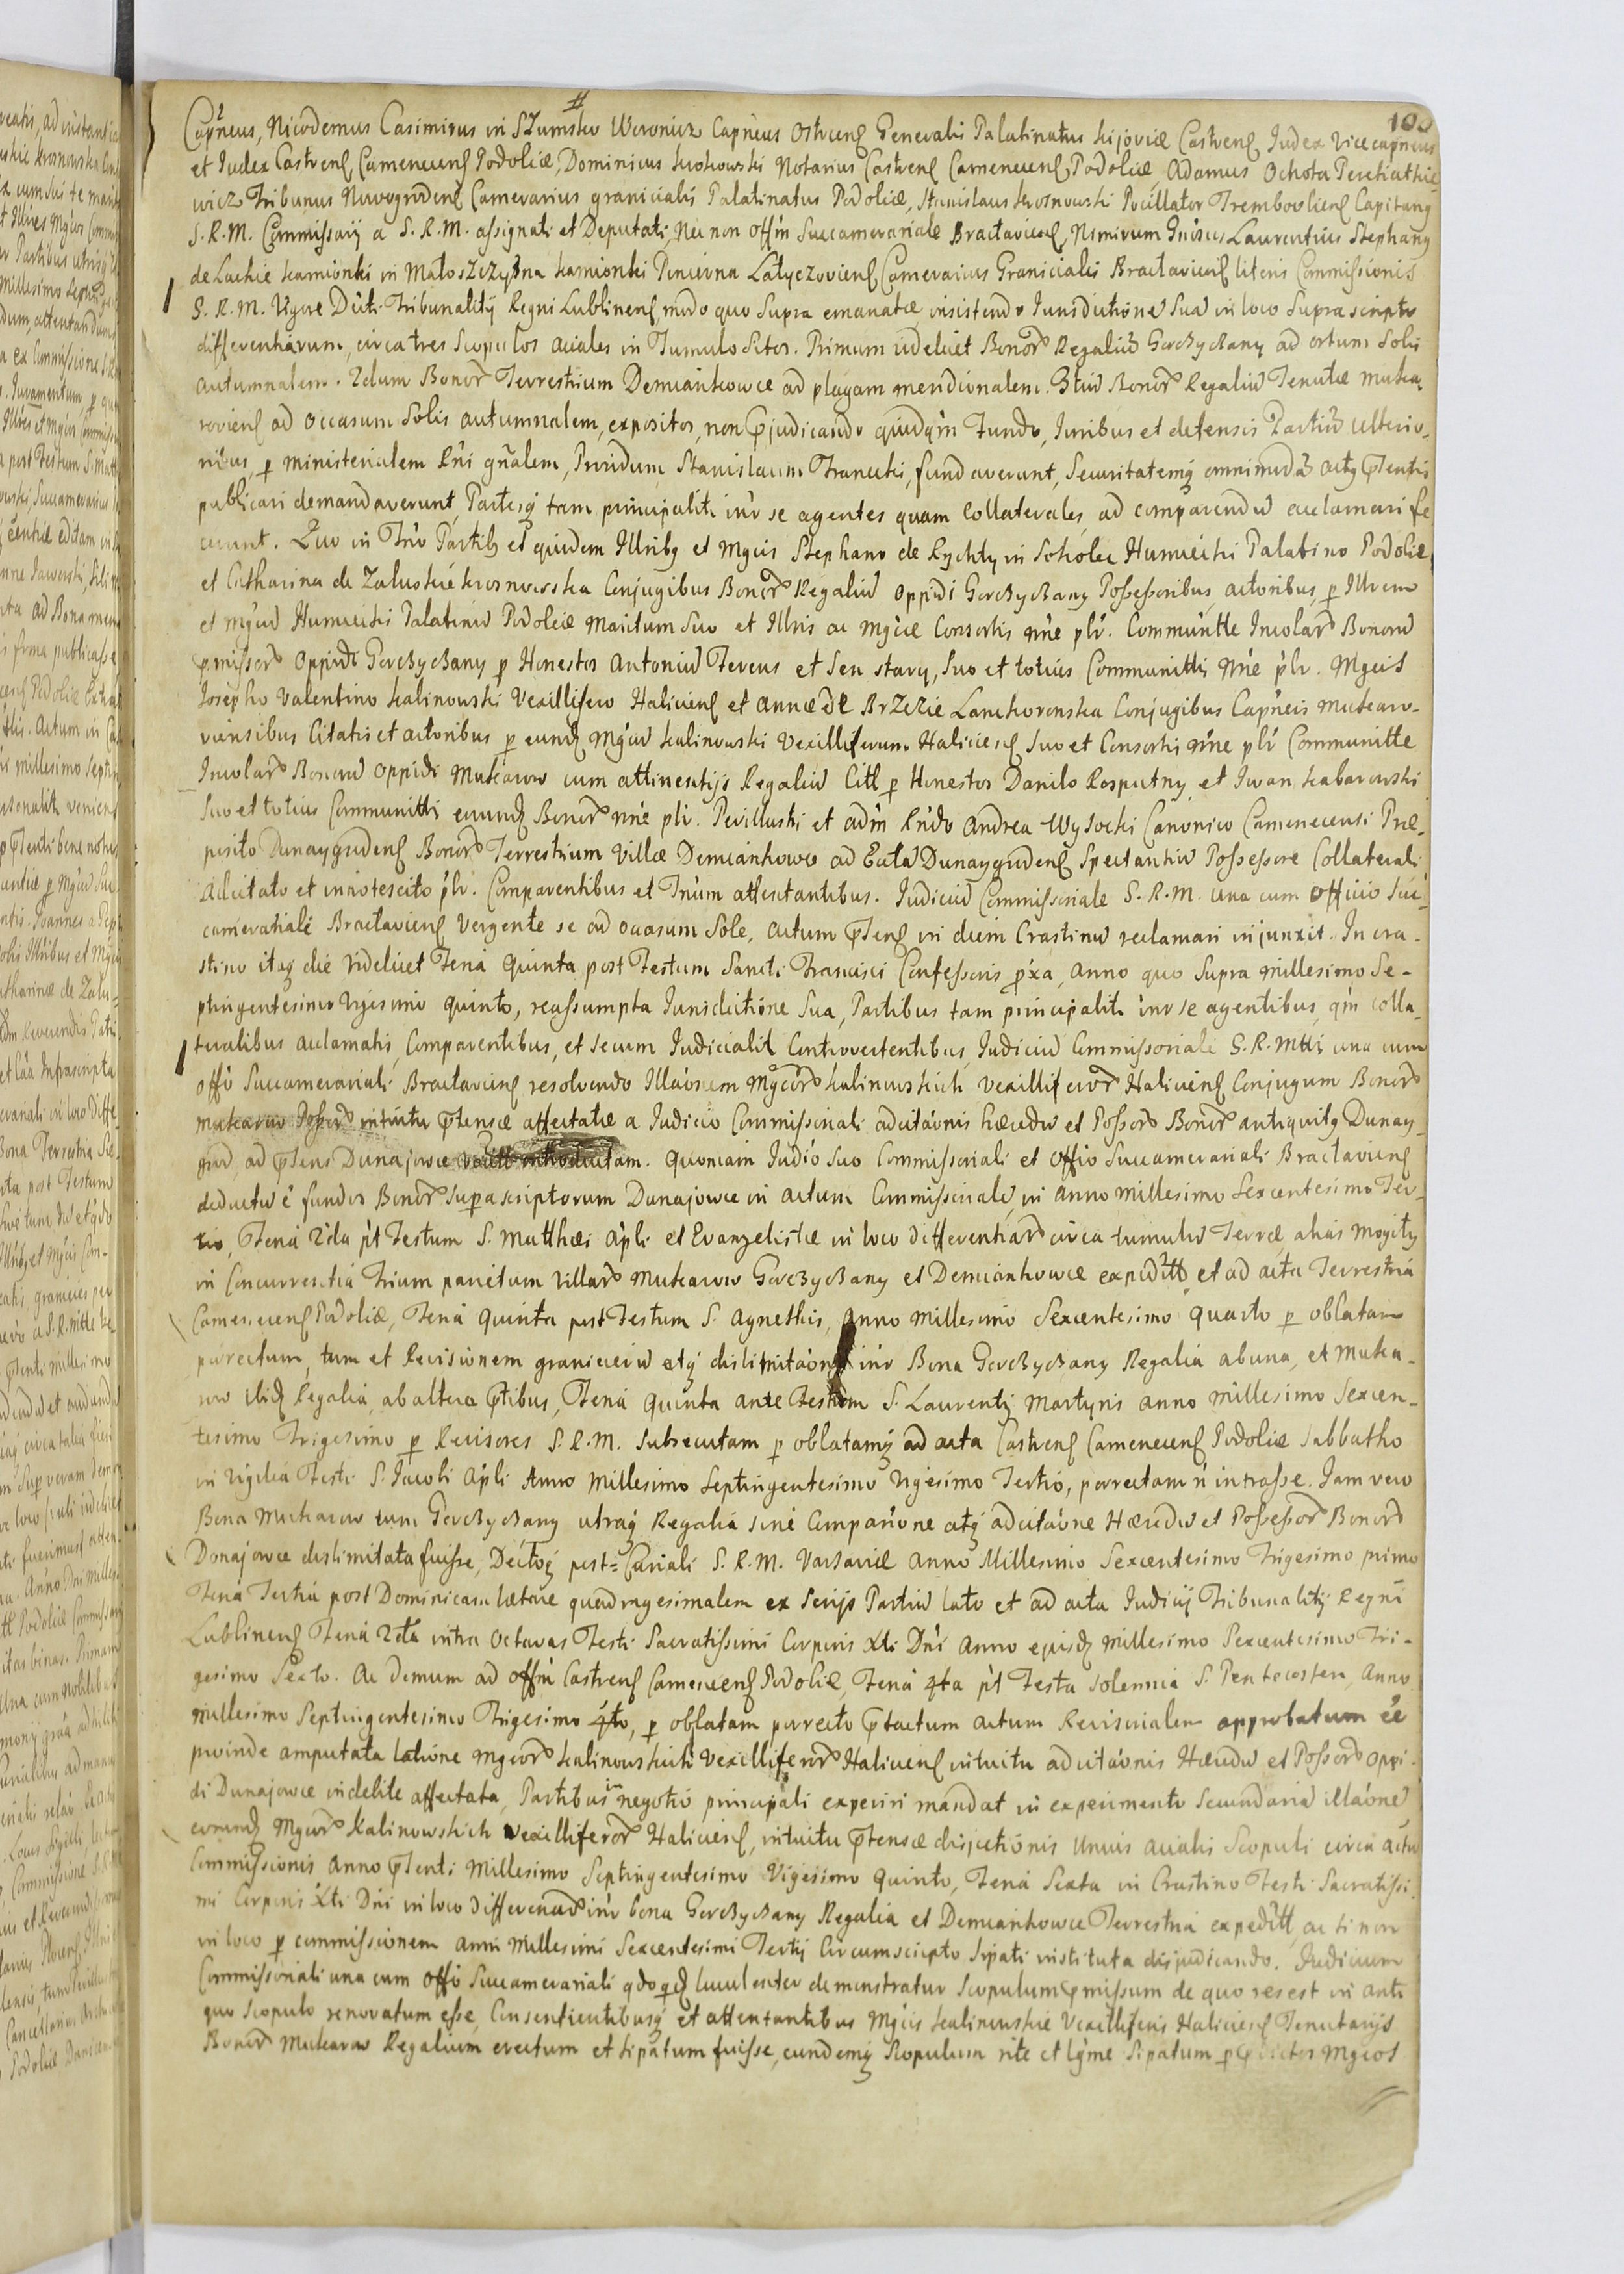 #
100
Capneus, Nicodemus Casimirus in Szumsko Woronicz Capneus Ostrcens Generalis Palatinatus Kijoviæ Castrens Judex Vicecapneus
et Judex Castrens Camenecens Podoliæ, Dominicus Krokowski Notarius Castrens Camenecens Podoliæ, Adamus Ochota Peretiathie-
wicz Tribunus Novogroden Camerarius granicialis Palatinatus Podoliæ, Stanislaus Krosnowski Pocillator Trembowliens Capitang
S. R. M. Commissarij a S. R. M. assignati et Deputati, Nec non Offm Succamerariale Bractaviens, Nimirum Gnosus Laurentius Stephang
de Lackie Kamionki in Małoszczyzna Kamionki Pincerna Latyczoviens Camerarius Granicialis Bractaviens literis Commissionis
S. R. M. Vigore Dcti Tribunalitij Regni Lublinens, modo quo Supra emanatæ insistendo Jurisdictione Sua in loco Supra scripto
differentiarum, circa tres Scopulos aciales in Tumulo Sitos. Primum videlicet Bonor Regaliu Gorczyczany ad ortum Solis
autumnalem. 2dum Bonor Terrestrium Demiankowce ad plagam meridionalem. 3tiu Bonor Regaliu Tenutæ Muka-
roviens ad occasum Solis autumnalem, expositos, non pjudicando quidqm Fundo, Juribus et defensis Partiu ulterio-
ribus, p ministerialem Rni gnalem, Providum Stanislaum Francuki, fundaverunt, Securitatemq omnimoda actq ptentis
publicari demandaverunt, Partesq tam principalit inr se agentes quam Collaterales, ad comparendu acclamari fe
cerunt. Quo in Trno Partibq et quidem Illribq et Mgcis Stephano de Rychty in Sokolec Humiecki Palatino Podoliæ,
et Catharina de Zaluskie Krosnowska Conjugibus Bonor Regaliu Oppidi Gorczyczany Possessoribus, actoribus, p Illrem
et Mgcu Humiecki Palatinu Podoliæ Maritum Suo et Illris ac Mgcæ Consortis nne plr. Communitte Incolar Bonoru
pmissor Oppidi Gorczyczany p Honestos Antoniu Ferens et Sen stary, Suo et totius Communitti nne plr. Mgcis
Josepho Valentino Kalinowski Vexillifero Haliciens et Annæ de Brzezie Lanckoronska Conjugibus Capneis Mukaro-
viensibus Citatis et actoribus p eund Mgcu Kalinowski Vexilliferum Haliciens Suo et Consortis nne plr Communitte
Incolar Bonoru Oppidi Mukarow cum attinentijs Regaliu Citt p Honestos Danilo Rosputny et Iwan Kabarowski
Suo et totius Communitti eorund Bonor nne plr. Pevilluski et adm Rndo Andrea Wysocki Canonico Camenecensi Præ-
posito Dunaygrodens Bonor Terrestrium Villæ Demiankowce ad Ecta Dunaygrodens Spectantiu Possessore Collaterali
Adcitato et innotescito plr. Comparentibus et Trnum attentantibus. Judiciu Commissoriale S. R. M. una cum Officio Suc-
camerariali Bractaviens Vergente se ad occasum Sole, actum ptens in diem Crastinu reclamari injunxit. In cra-
stino itaq die videlicet Feria Quinta post Festum Sancti Francisci Confessoris pxa, Anno quo Supra Millesimo Se-
ptingentesimo Vigesimo quinto, reassumpta Jurisdictione Sua, Partibus tam principalit inr se agentibus, qm colla-
teralibus acclamatis, Comparentibus, et Secum Judicialit Controvertentibus, Judiciu Commissoriale S. R. Mttis una cum
offo Succamerariali Bractaviens resolvendo Illaonem Mgcor Kalinowskich Vexilliferor Haliciens Conjugum Bonor
Mukarow Possor intuitu ptensæ affectatæ a Judicio Commissoriali adcitaonis hæredu et Possor Bonor antiquitq Dunay-
grod, ad ptens Dunajowce introductam. Quoniam Judio Suo Commissoriali et Offio Succamerariali Bractaviens
deductu e fundos Bonor Suprascriptorum Dunajowce in actum Commissoriale, in anno Millesimo Sexcentesimo Ter-
tio, Feria 2da pt Festum S. Matthæi Apli et Evangelistæ in loco differentiar circa tumulu Terræ alias Mogiły
in Concurrentia Trium parietum Villar Mukarow Gorczyczany et Demiankowce expeditt et ad acta Terrestria
Camenecens Podoliæ, Feria Quinta post Festum S. Agnethis, Anno Millesimo Sexcentesimo Quarto p oblatam
porrectum, tum et Revisionem granicieru etq dislimitaons inr Bona Gorczyczany Regalia ab una, et Muka-
row ibid Regalia ab altera ptibus, Feria Quinta ante Festum S. Laurentij Martyris anno Millesimo Sexcen-
tesimo Trigesimo p Revisores S. R. M. Subsecutam p oblatamq ad acta Castrens Camenecens Podoliæ Sabbatho
in Vigilia Festi S. Jacobi Apli Anno Millesimo Septingentesimo Vigesimo Tertio, porrectam n intrasse. Jam vero
Bona Mukarow tum Gorczyczany utraq Regalia sine Comparione atq adcitaone Hæredu et Possessor Bonor
Donajowce dislimitata fuisse, Dectoq post Curiali S. R. M. Varsaviæ Anno Millesimo Sexcentesimo Trigesimo primo
Feria Tertia post Dominicam Lætare quadragesimalem ex Scrijs Partiu lato et ad acta Judicij Tribunalitij Regni
Lublinens Feria 2da intra Octavas Festi Sacratissimi Corporis Xti Dni anno ejusd Millesimo Sexcentesimo Tri-
gesimo Sexto. Ac demum ad offm Castrens Camenecens Podoliæ, Feria 4ta pt Festa Solennia S. Pentecosten, Anno
Millesimo Septingentesimo Trigesimo 4to, p oblatam porrecto ptactum actum Revisorialem approbatum ee
proinde amputata latione Mgcor Kalinowskich Vexilliferor Haliciens intuitu adcitaonis Hæredu et Possor Oppi-
di Dunajowce indebite affectata, Partibus in negotio principali experiri mandat in experimento Secundaria illaone
eorund Mgcor Kalinowskich Vexilliferor Haliciens, intuitu ptensæ disjectionis Unius acialis Scopuli circa actu
Commissionis Anno ptenti Millesimo Septingentesimo Vigesimo Quinto, Feria Sexta in Crastino Festi Sacratissi-
mi Corporis Xti Dni in loco differenar inr bona Gorczyczany Regalia et Demiankowce Terrestria expeditt, ac si non
in loco p commissionem Anni Millesimi Sexcentesimi Tertij Circumscripto Sipati instituta disjudicando. Judicium
Commissoriali una cum Offo Succamerariali qdoqd luculenter demonstratur Scopulum pmissum de quo res est in anti
quo Scopulo renovatum esse, Consentientibusq et attentantibus Mgcis Kalinowskie Vexilliferis Haliciens Tenutarijs
Bonor Mukarow Regalium erectum et sipatum fuisse, eundemq Scopulum rite et lgme Sipatum p Mgcos